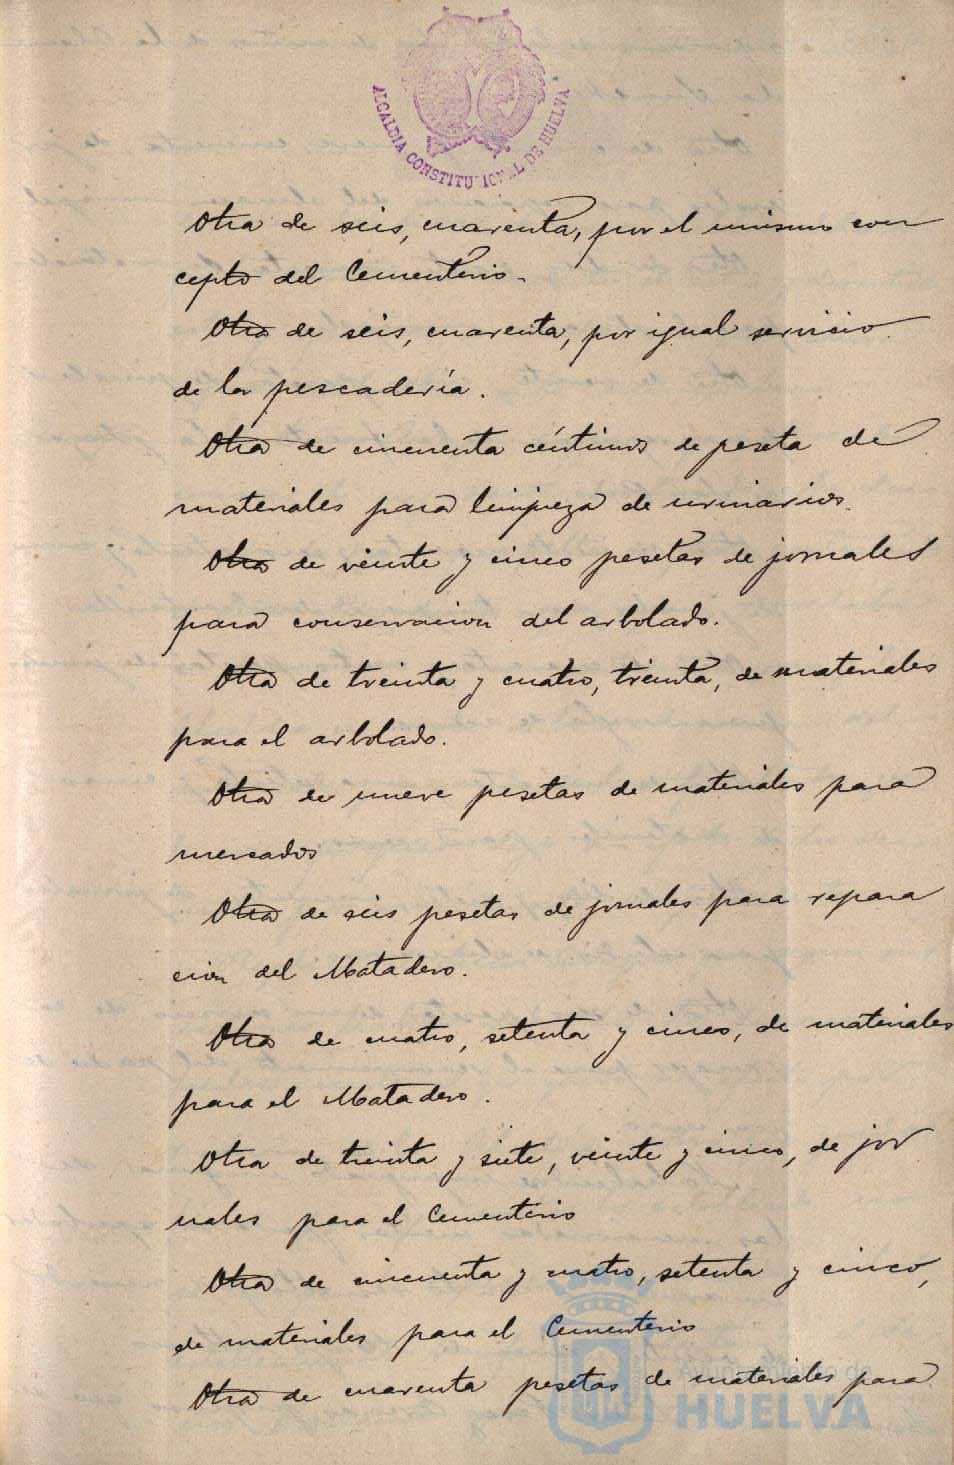 ALCALDIA CONSTITUCIONAL DE HUELVA
Otra de seis, cuarenta, por el mismo con
cepto del Cementerio.
Otra de seis, cuarenta, por igual servicio
de la pescadería.
Otra de cincuenta céntimos de peseta de
materiales para limpieza de urinarios.
Otra de veinte y cinco pesetas de jornales
para conservacion del arbolado.
Otra de treinta y cuatro, treinta, de materiales
para el arbolado.
Otra de nueve pesetas de materiales para
mercados
Otra de seis pesetas de jornales para repara
cion del Matadero.
Otra de cuatro, setenta y cinco, de materiales
para el Matadero.
Otra de treinta y siete, veinte y cinco, de jor
nales para el Cementerio
Otra de cincuenta y cuatro, setenta y cinco,
de materiales para el Cementerio
Otra de cuarenta pesetas de materiales para
Ayuntamiento de
HUELVA